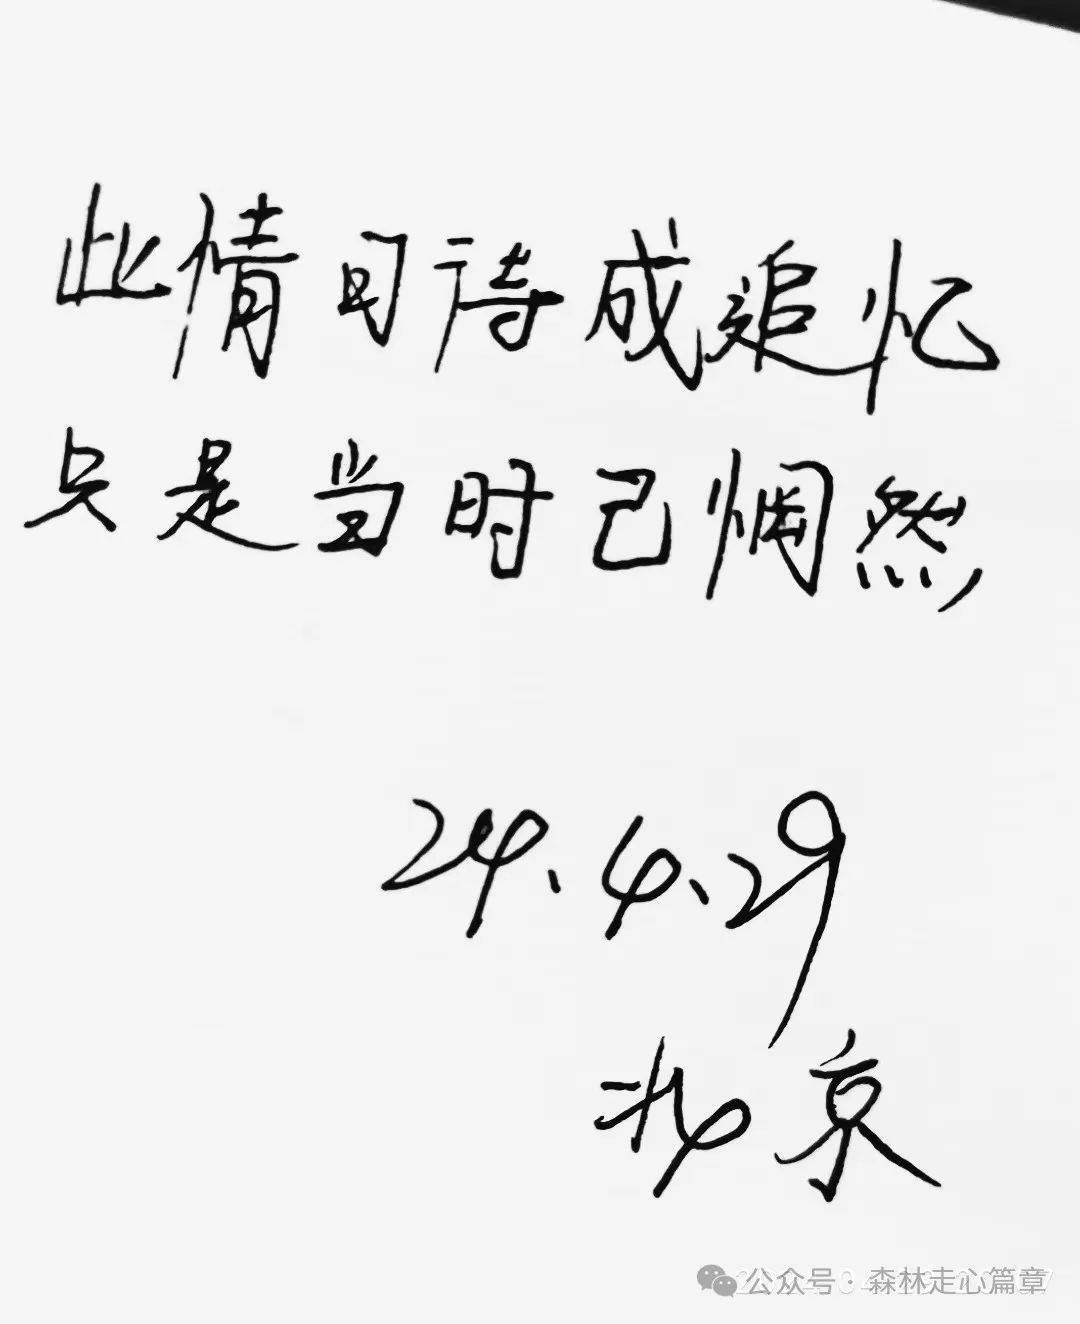 此情可待成追忆
只是当时已惘然
24.4.29
北京
公众号·森林走心篇章